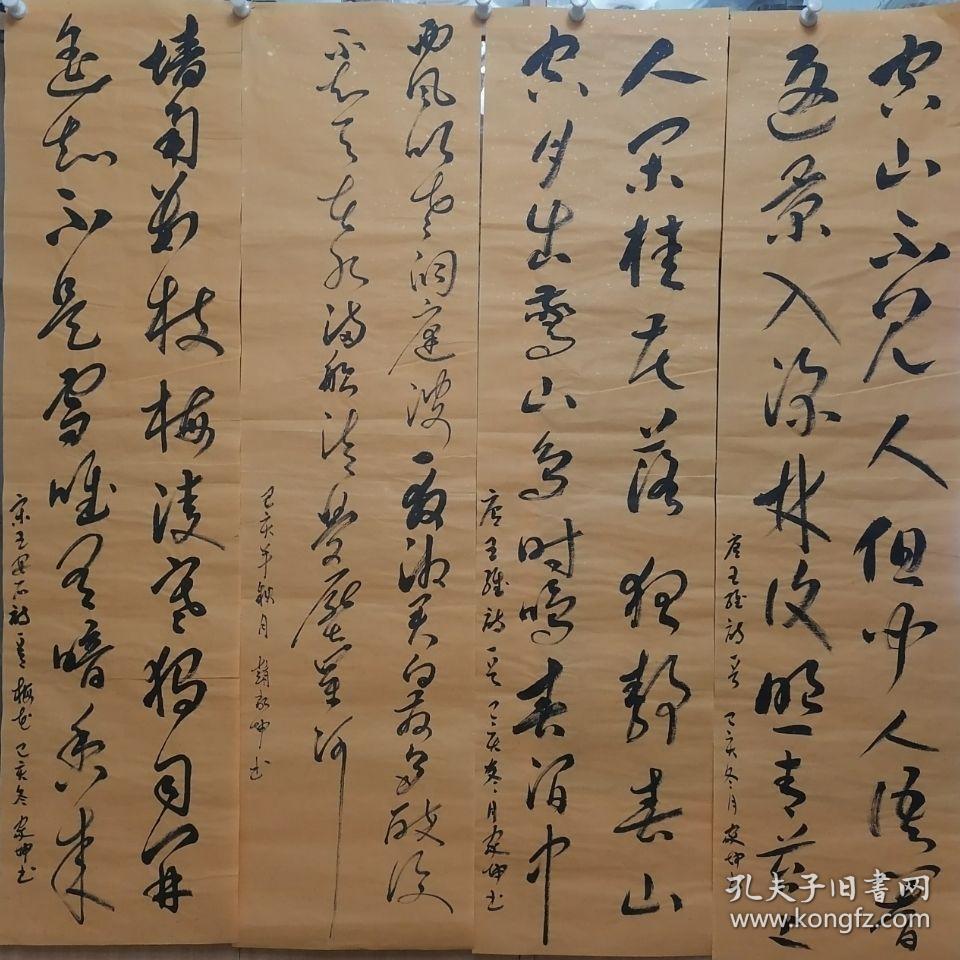 空山不见人但闻人语响
返景入深林復照青苔上
唐王维诗一首 己亥冬月 家坤书
人闲桂花落夜静春山
空月出驚山鸟时鸣春涧中
唐王维诗一首 己亥冬月 家坤书
西风吹老洞庭波一夜湘君白发多醉后
不知天在水满船清梦压星河
己亥年秋月 趙家坤书
墙角数枝梅凌寒独自开
遥知不是雪唯有暗香来
宋王安石诗一首 梅花 己亥冬 家坤书
孔夫子旧书网
www.kongfz.com